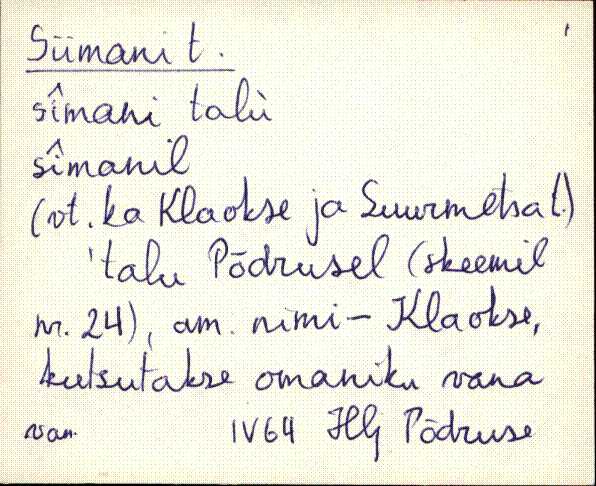 Siimani t.
sîmani talù
sîmanil
(vt. ka Klaokse ja Suurmetsa t.)
'talu Põdrusel (skeemil
nr. 24), am. nimi - Klaokse,
kutsutakse omaniku vana
van. IV64 Hlj Põdruse